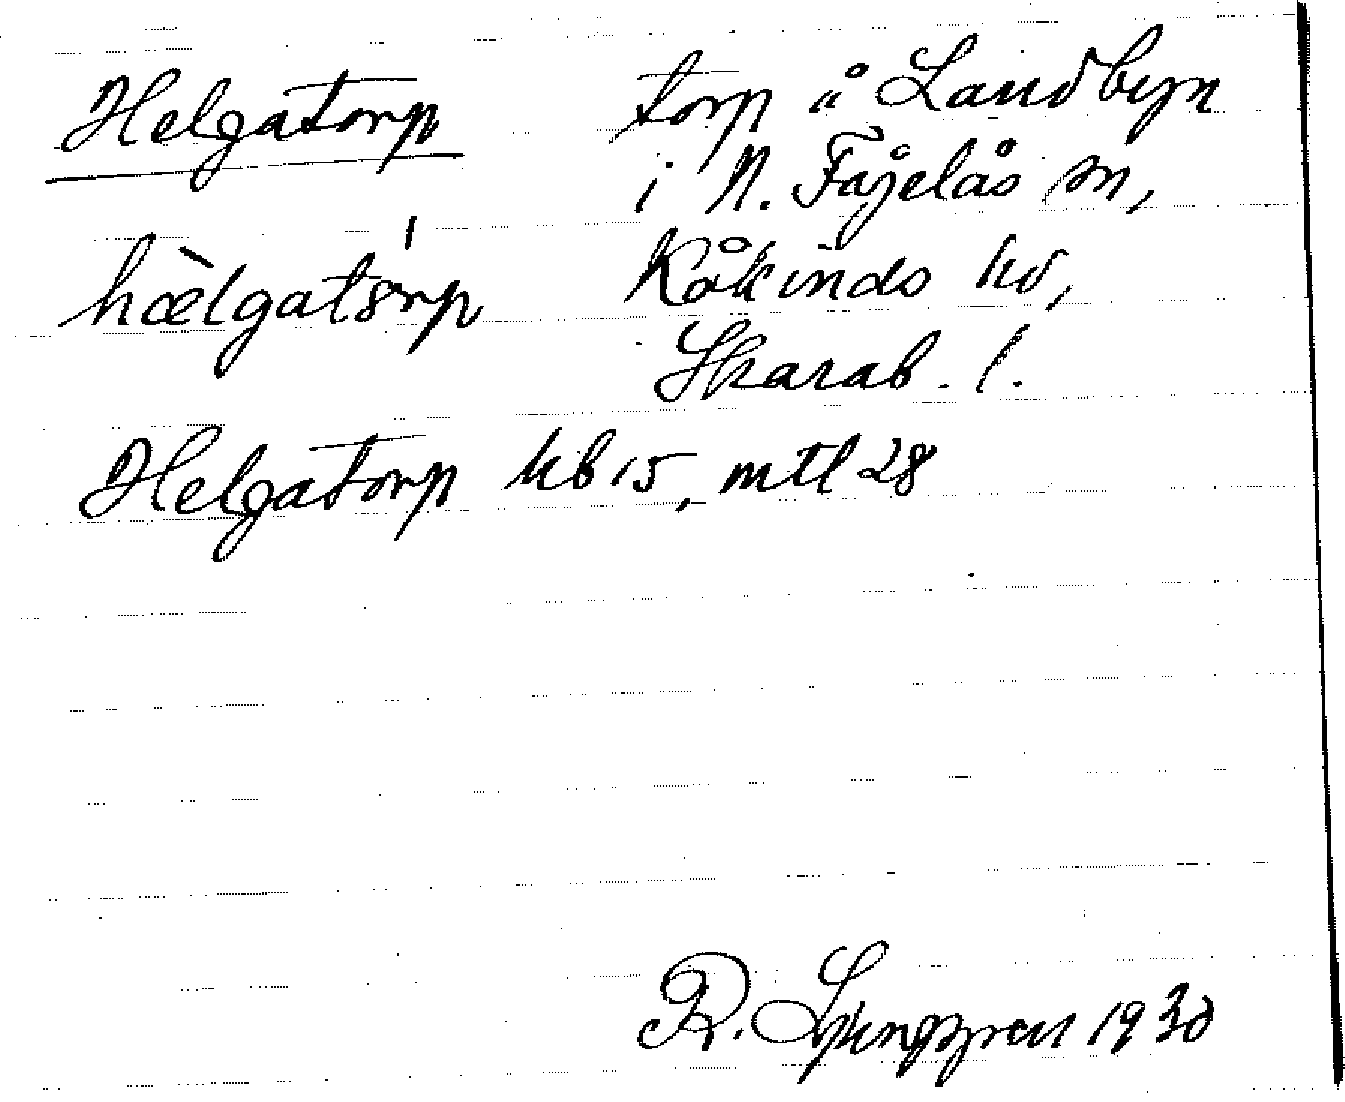 Helgatorp torp å Landbyn
i N. Fågelås sn,
hælgatórp Kåkinds hd,
Skarab. l.
Helgatorp kb 15, mtl 28
R. Ljunggren 1930